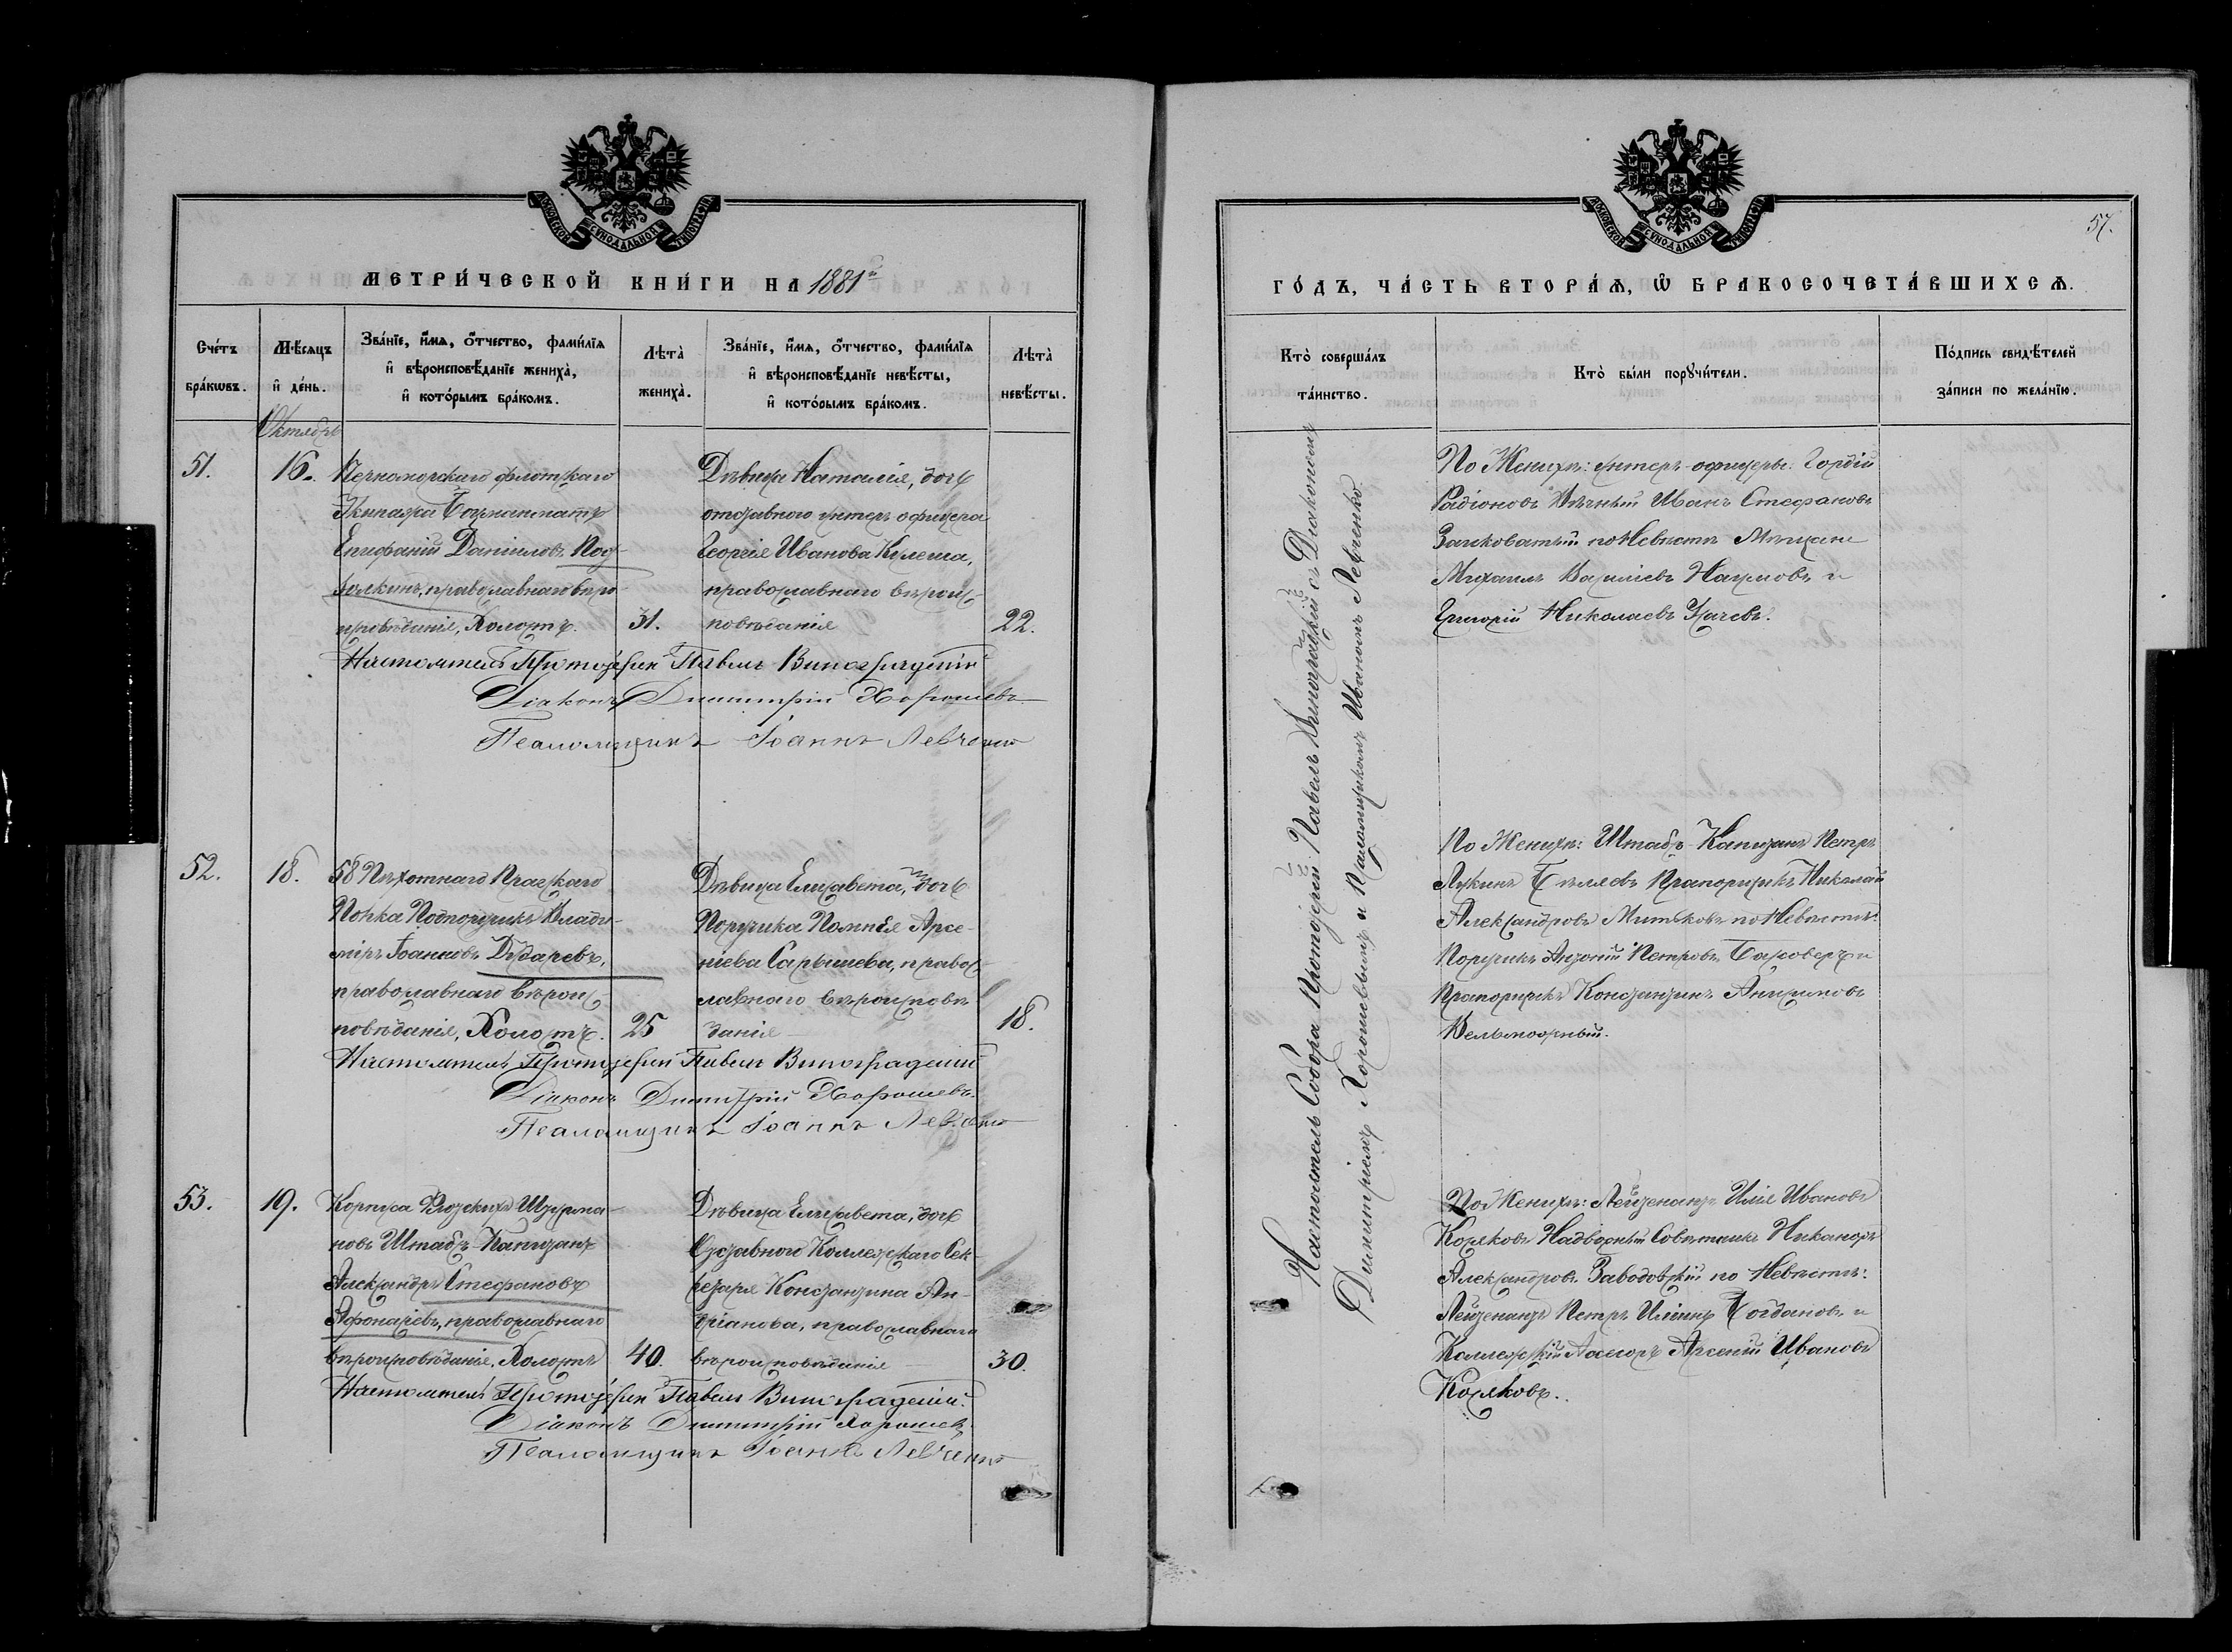 МОСКОВСКОЙ СУНОДАЛЬНОЙ ТИПОГРАФІИ
МЕТРИ́ЧЕСКОЙ КНИ́ГИ НА 1881й
Сче́тъ бра́кωвъ.
Мѣ́сѧцъ и҆ де́нь.
Зва́нїе, и҆́мѧ, ѻ҆́тчество, фами́лїѧ и҆ вѣроисповѣ́данїе жениха̀, и҆ кото́рымъ бра́комъ.
Лѣта̀ жениха̀.
Зва́нїе, и҆́мѧ, ѻ҆́тчество, фами́лїѧ и҆ вѣроисповѣ́данїе невѣ́сты, и҆ кото́рымъ бра́комъ.
Лѣта̀ невѣ́сты.
Октябрь
51.
16.
Черноморскаго флотскаго
Экипажа Боцманматъ
Епифаній Даніиловъ Под-
православнаго вѣро-
исповѣданія, Холостъ.
31.
Дѣвица Наталія, дочь
отставного унтеръ офицера
Георгія Иванова Кулеша,
православнаго вѣроис-
повѣданія
22.
Настоятель Протоіерей Павелъ Виноградскій
Діаконъ Димитрій Хорошевъ
Псаломщикъ Іоаннъ Левченко
52.
18.
58 Пѣхотнаго Пражскаго
Полка Подпоручикъ Влади-
міръ Іоанновъ Дударевъ,
православнаго вѣроис-
повѣданія, Холостъ.
25
Дѣвица Елисавета, дочь
Поручика Арсе-
ніева православнаго вѣроисповѣ
данія
18.
Настоятель Протоіерей Павелъ Виноградскій
Діаконъ Димитрій Хорошевъ.
Псаломщикъ Іоаннъ Левченко
53.
19.
Корпуса Флотскихъ Штурма-
новъ Штабсъ-Капитанъ
Александръ Стефановъ
православнаго
вѣроисповѣданія, Холостъ
40.
Дѣвица Елисавета, дочь
Отставного Коллежскаго Сек-
ретаря Константина Ан-
дріанова, православнаго
вѣроисповѣданія
30.
Настоятель Протоіерей Павелъ Виноградскій.
Діаконъ Димитрій Хорошевъ
Псаломщикъ Іоаннъ Левченко
57.
МОСКОВСКОЙ СУНОДАЛЬНОЙ ТИПОГРАФІИ
ГО́ДЪ, ЧА́СТЬ ВТОРА́Ѧ, Ѽ БРАКОСОЧЕТА́ВШИХСѦ.
Кто̀ соверша́лъ та́инство.
Кто̀ бы́ли порꙋчи́тели.
По́дпись свидѣ́телей за́писи по жела́нїю.
Настоятель Собора Протоіерей Павелъ Виноградскій съ Діакономъ
Димитріемъ Хорошевымъ и Псаломщикомъ Иваномъ Левченко.
По Женихѣ: унтеръ-офицеры: Гордій
Радіоновъ Иванъ Стефановъ
по Невѣстѣ Мѣщане
Михаилъ Василіевъ Наумовъ и
Григорій Николаевъ
По Женихѣ: Штабсъ-Капитанъ Петръ
Лукинъ Бѣляевъ Прапорщикъ Николай
Александровъ Митьковъ по Невѣстѣ:
Поручикъ Антоній Петровъ и
Прапорщикъ Константинъ
По Женихѣ: Лейтенантъ Илія Ивановъ
Надворный Совѣтникъ Никаноръ
Александровъ Заводовскій по Невѣстѣ:
Лейтенантъ Петръ Илiинъ Богдановъ и
Коллежскій Асесоръ Арсеній Ивановъ